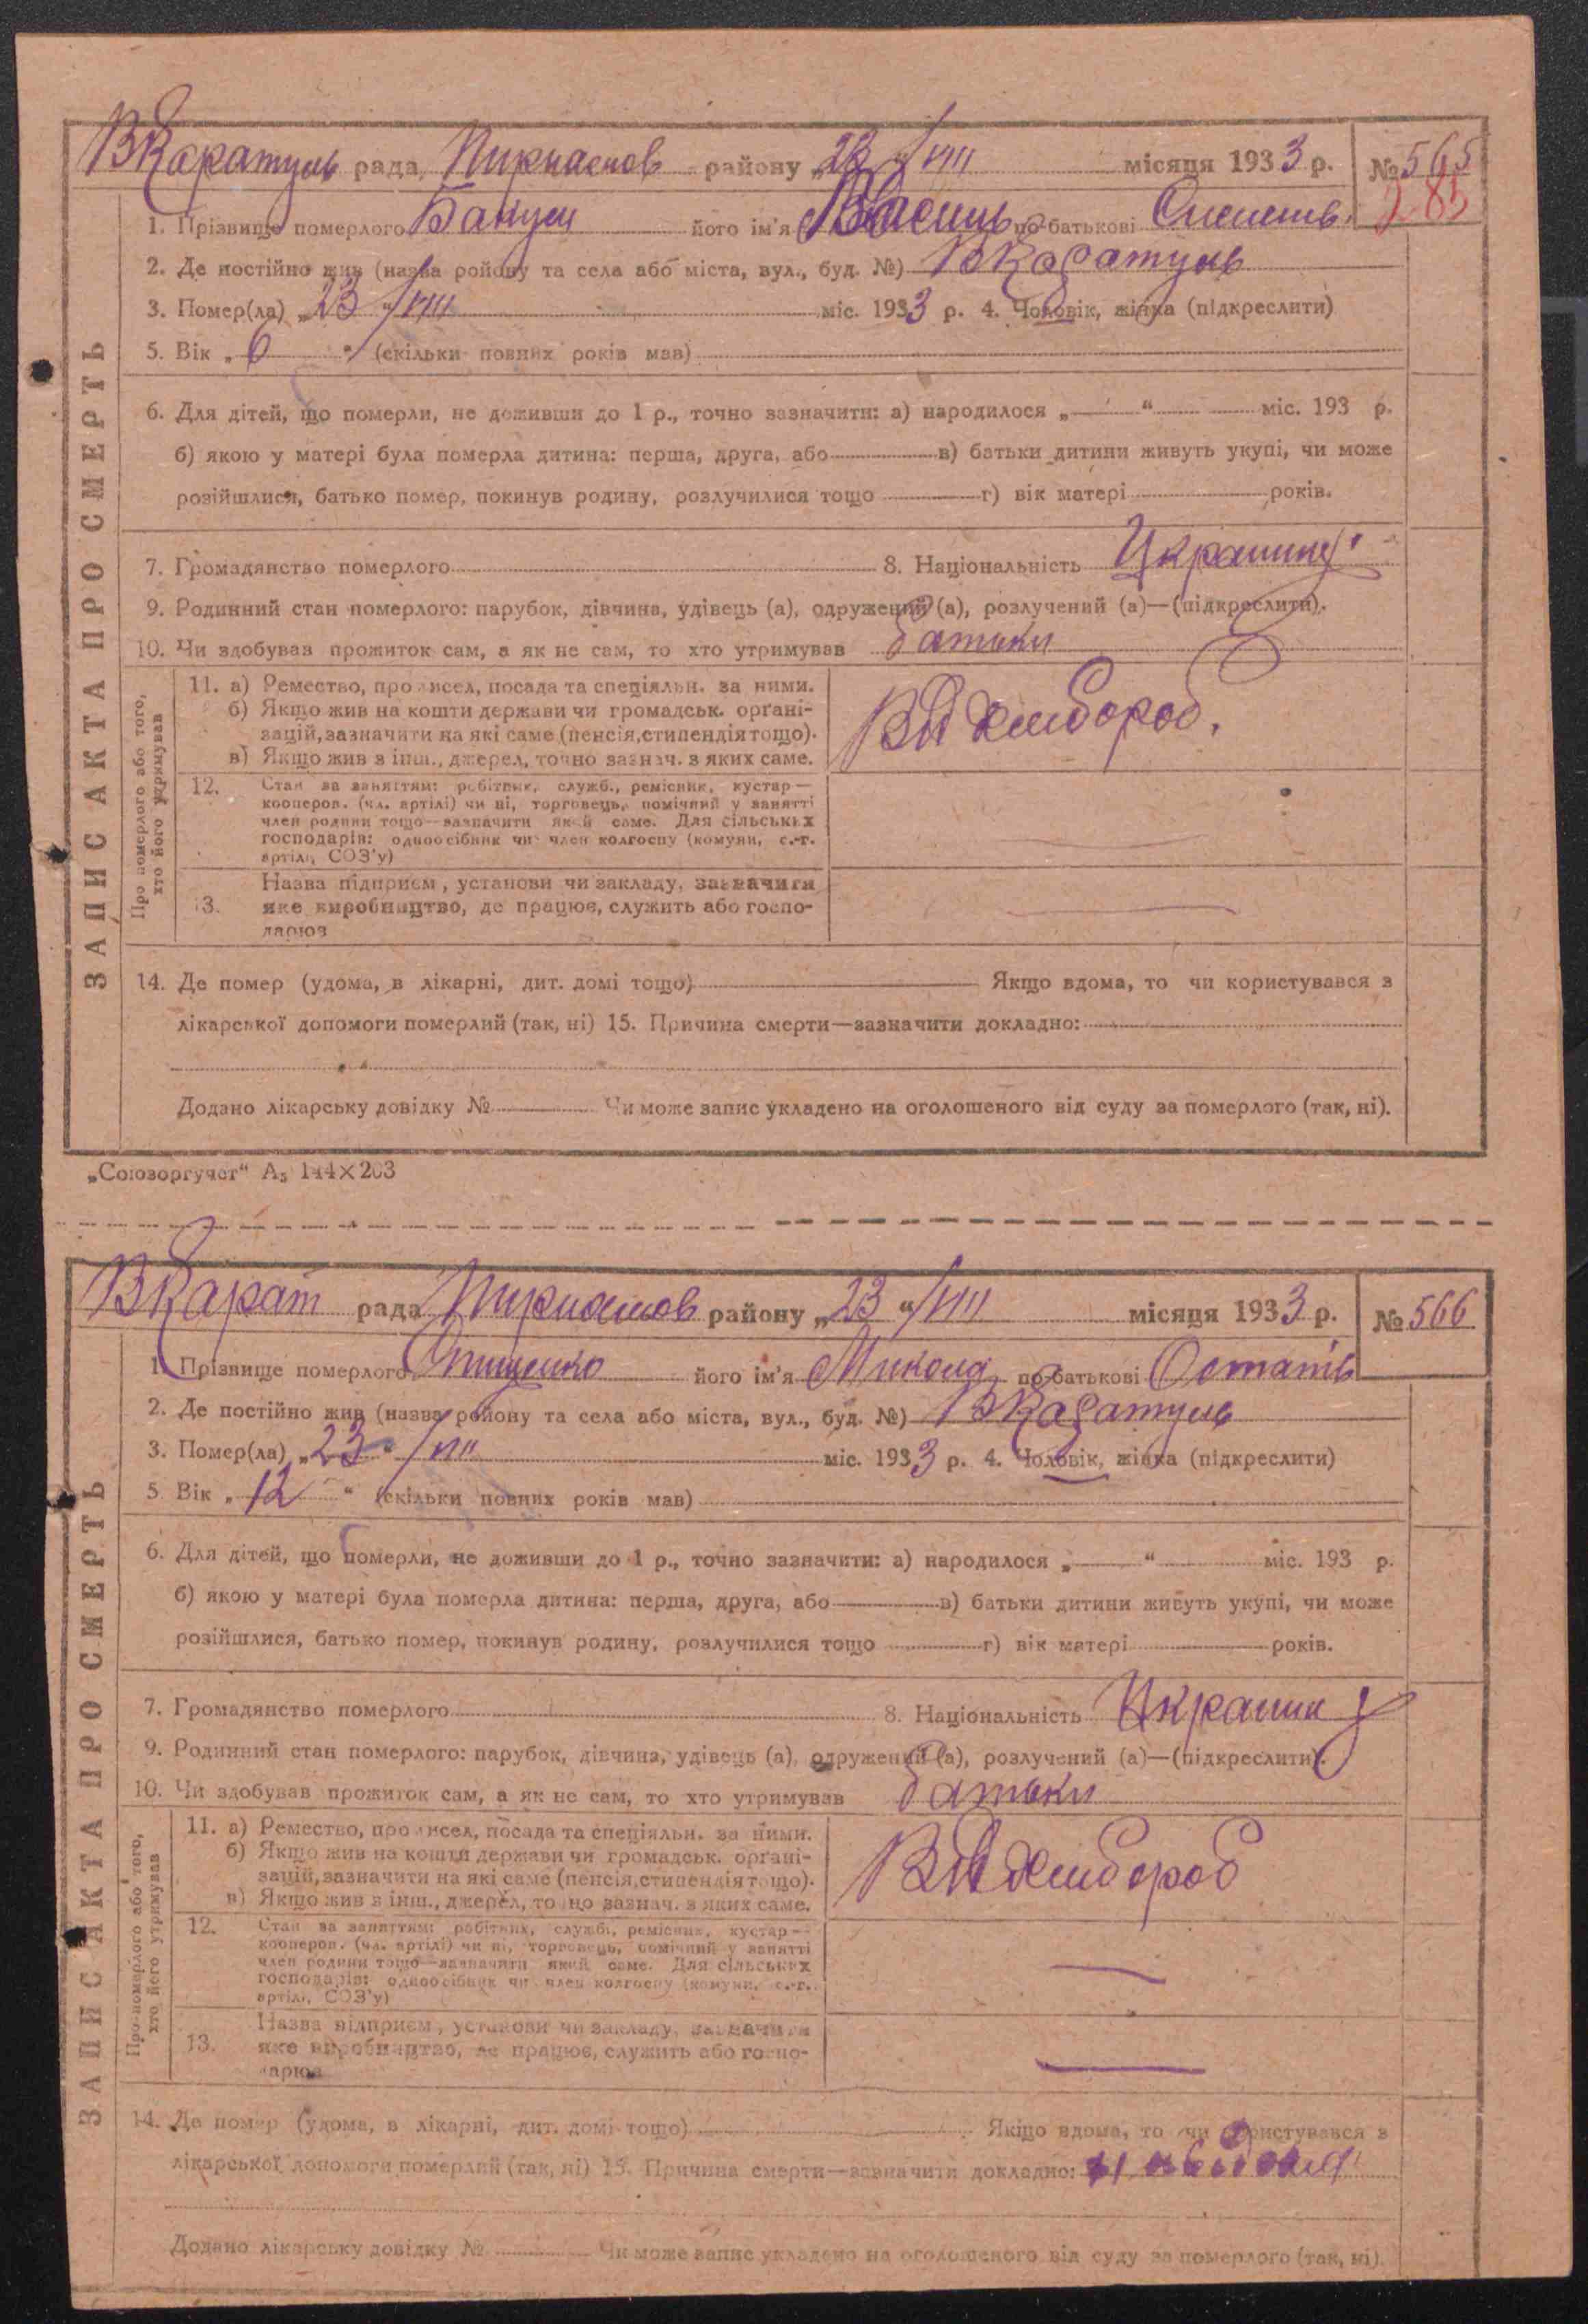 ВКаратуль рада, района „23“ VIII місяця 1933 р. № 565
285
1. Прізвище померлого його ім'я по-батькові
2. Де постійно жив (назва району та села або міста, вул., буд. №) ВКаратуль
3. Помер(ла) „23“ VIII міс. 1933 р. 4. Чоловік, жінка (підкреслити)
5. Вік „6“ (скільки повних років мав)
6. Для дітей, що померли, не доживши до 1 р., точно зазначити: а) народилося „ “ міс. 193 р.
б) якою у матері була померла дитина: перша, друга, або в) батьки дитини живуть укупі, чи може
розійшлися, батько помер, покинув родину, розлучилися тощо г) вік матері років.
7. Громадянство померлого 8. Національність
9. Родинний стан померлого: парубок, дівчина, удівець (а), одружений (а), розлучений (а)—(підкреслити).
10. Чи здобував прожиток сам, а як не сам, то хто утримував батьки
ЗАПИС АКТА ПРО СМЕРТЬ
Про померлого або того, хто його утримував
11. а) Ремество, промисел, посада та спеціяльн. за ними.
б) Якщо жив на кошти держави чи громадськ. органі-
зацій, зазначити на які саме (пенсія, стипендія тощо).
в) Якщо жив з інш., джерел, точно зазнач. з яких саме.
12. Стан за заняттям: робітник, служб., ремісник, кустар—
кооперов. (чл. артілі) чи ні, торговець, помічний у занятті
член родини тощо—зазначити який саме. Для сільських
господарів: одноосібник чи член колгоспу (комуни, с.-г.
артілі, СОЗ'у)
13. Назва підприєм., установи чи закладу, зазначити
яке виробництво, де працює, служить або госпо-
дарює
14. Де помер (удома, в лікарні, дит. домі тощо) Якщо вдома, то чи користувався з
лікарської допомоги померлий (так, ні) 15. Причина смерти—зазначити докладно:
Додано лікарську довідку № Чи може запис укладено на оголошеного від суду за померлого (так, ні).
„Союзоргучет“ А₅ 144×203
ВКарат рада району „23“ VIII місяця 1933 р. № 566
1. Прізвище померлого Онищенко його ім'я Микола по-батькові
2. Де постійно жив (назва району та села або міста, вул., буд. №) ВКаратуль
3. Помер(ла) „23“ VIII міс. 1933 р. 4. Чоловік, жінка (підкреслити)
5. Вік „12“ (скільки повних років мав)
6. Для дітей, що померли, не доживши до 1 р., точно зазначити: а) народилося „ “ міс. 193 р.
б) якою у матері була померла дитина: перша, друга, або в) батьки дитини живуть укупі, чи може
розійшлися, батько помер, покинув родину, розлучилися тощо г) вік матері років.
7. Громадянство померлого 8. Національність
9. Родинний стан померлого: парубок, дівчина, удівець (а), одружений (а), розлучений (а)—(підкреслити).
10. Чи здобував прожиток сам, а як не сам, то хто утримував батьки
ЗАПИС АКТА ПРО СМЕРТЬ
Про померлого або того, хто його утримував
11. а) Ремество, промисел, посада та спеціяльн. за ними.
б) Якщо жив на кошти держави чи громадськ. органі-
зацій, зазначити на які саме (пенсія, стипендія тощо).
в) Якщо жив з інш., джерел, точно зазнач. з яких саме.
12. Стан за заняттям: робітник, служб., ремісник, кустар—
кооперов. (чл. артілі) чи ні, торговець, помічний у занятті
член родини тощо—зазначити який саме. Для сільських
господарів: одноосібник чи член колгоспу (комуни, с.-г.
артілі, СОЗ'у)
13. Назва підприєм., установи чи закладу, зазначити
яке виробництво, де працює, служить або госпо-
дарює
14. Де помер (удома, в лікарні, дит. домі тощо) Якщо вдома, то чи користувався з
лікарської допомоги померлий (так, ні) 15. Причина смерти—зазначити докладно:
Додано лікарську довідку № Чи може запис укладено на оголошеного від суду за померлого (так, ні).